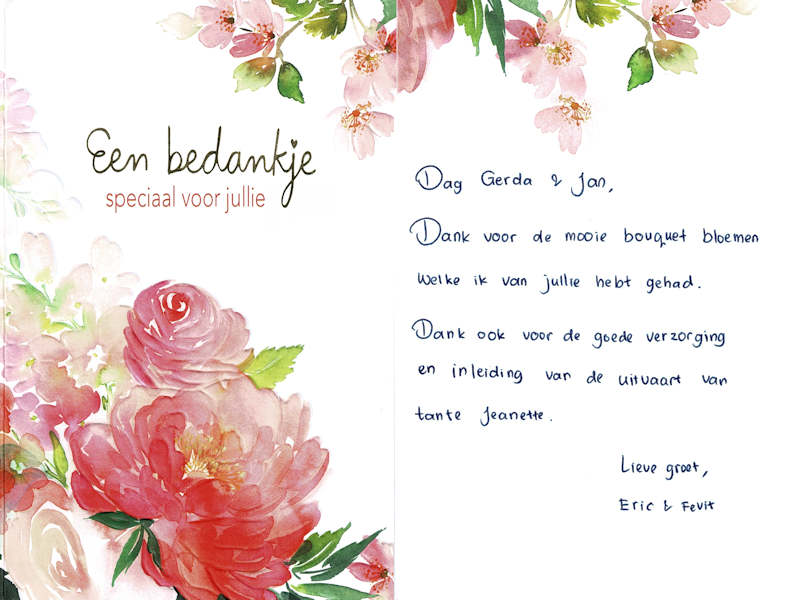 Een bedankje
speciaal voor jullie
Dag Gerda & Jan,
Dank voor de mooie bouquet bloemen
Welke ik van jullie hebt gehad.
Dank ook voor de goede verzorging
en inleiding van de uitvaart van
tante Jeanette.
Lieve groet,
Eric & Fevit